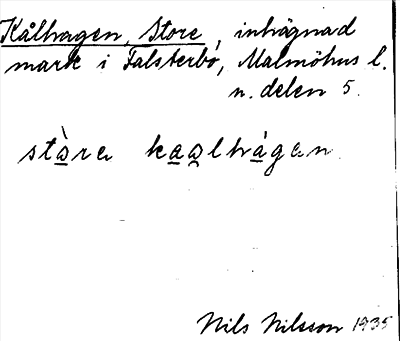 Kålhagen, Store, inhägnad
mark i Falsterbo, Malmöhus l.
n. delen 5.
stàra kaalhágan
Nils Nilsson 1935